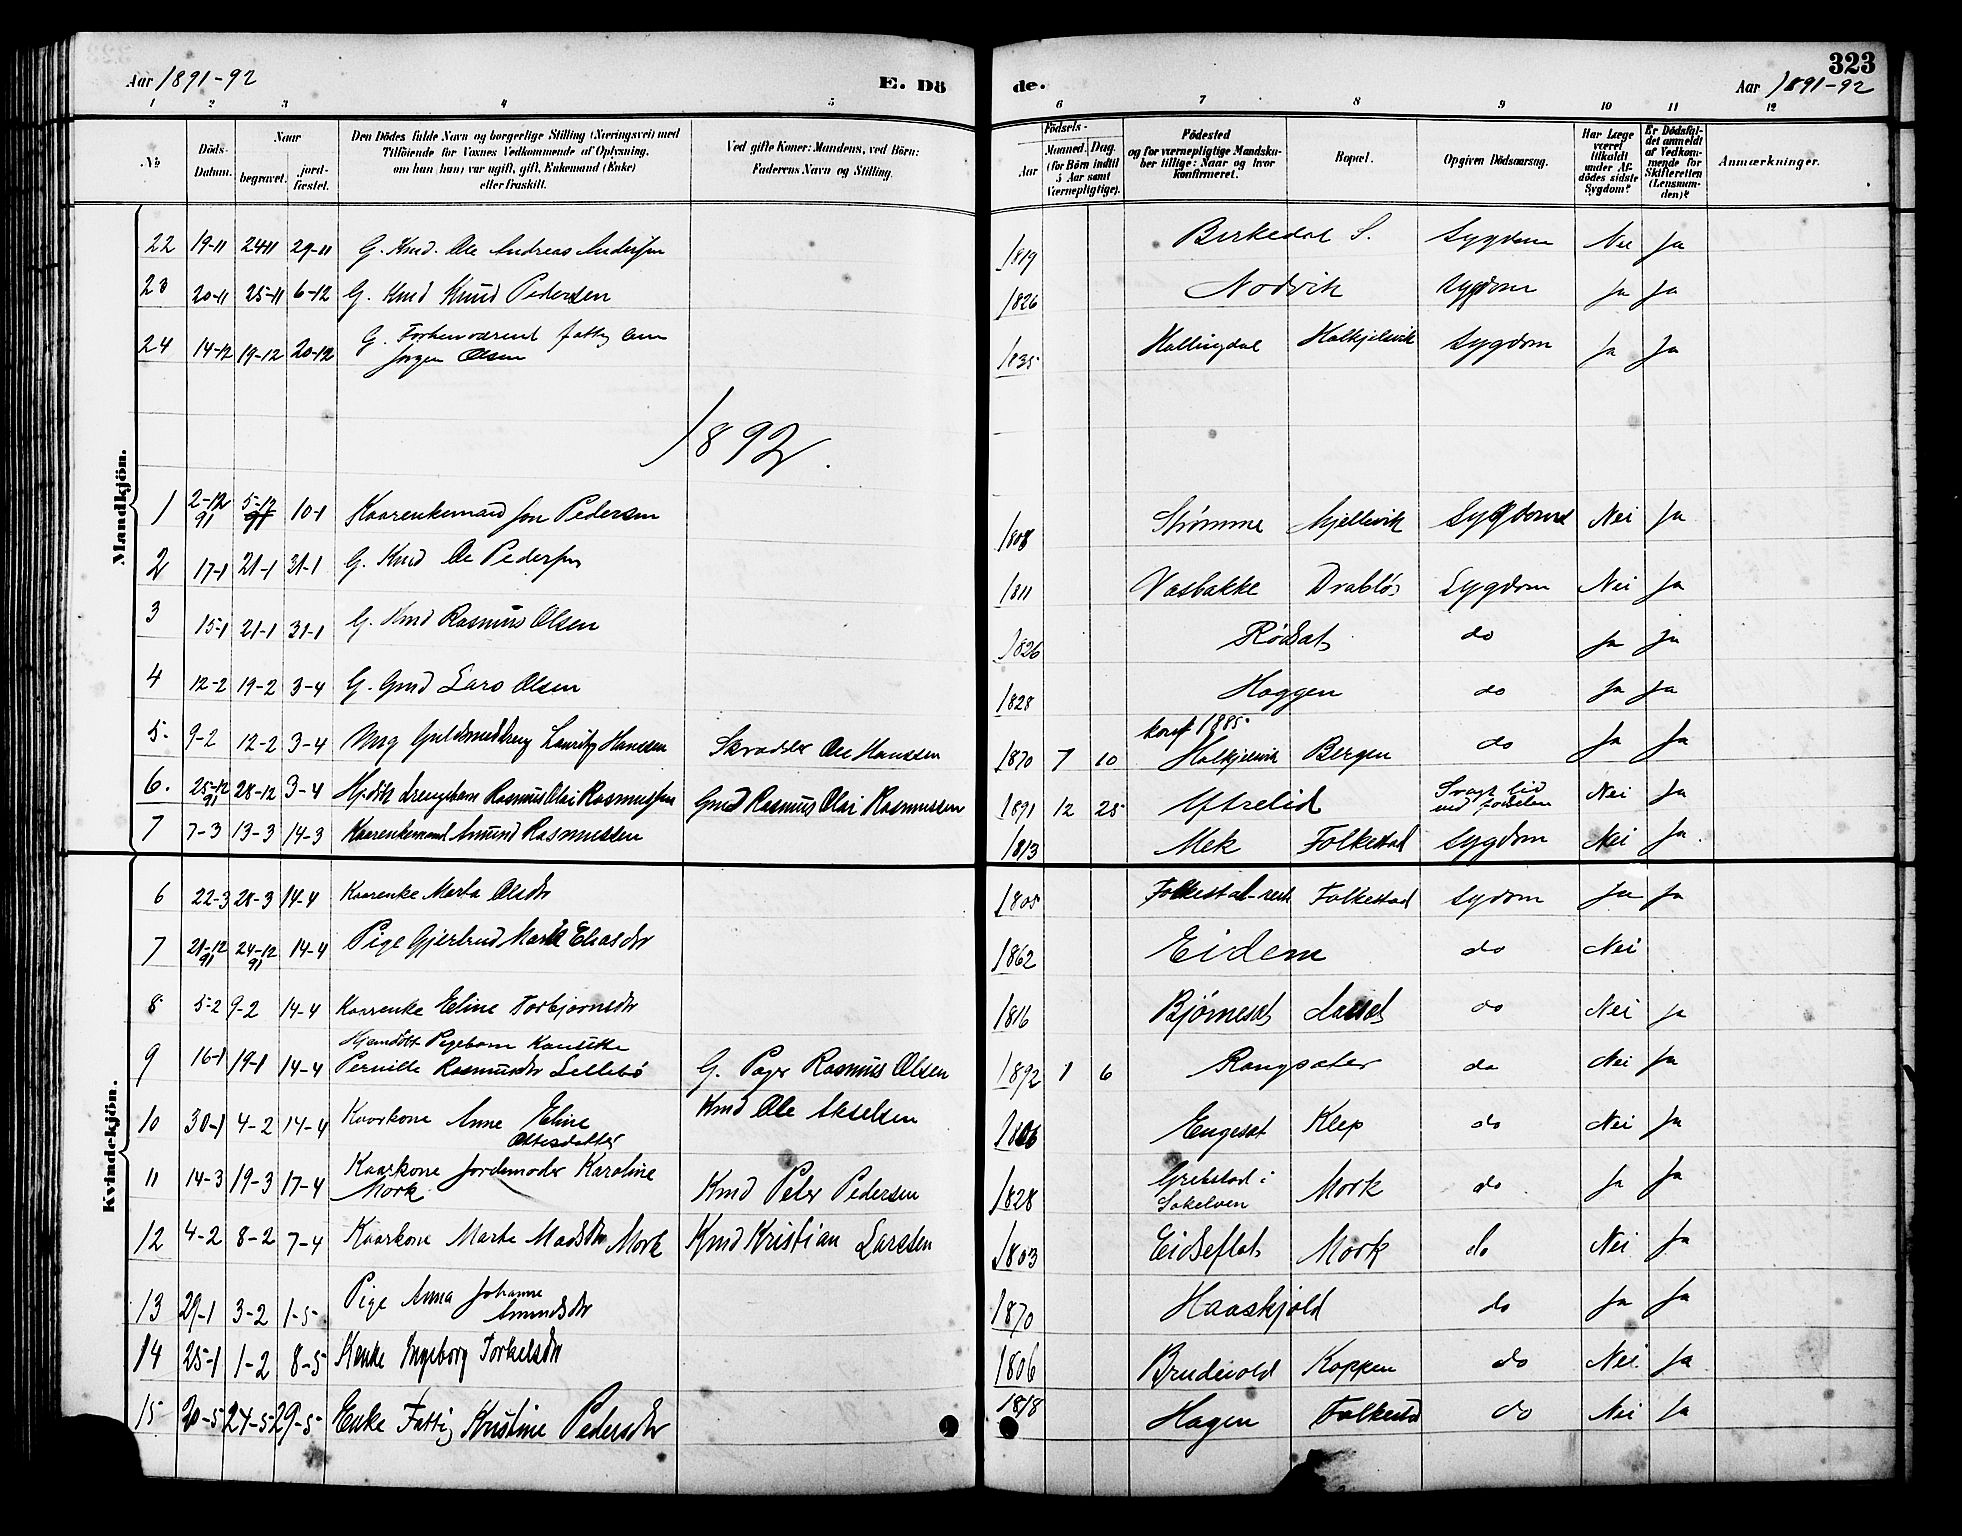 Aar 1891-92
E. Dö
de.
323
Aar 1891-92
1 2 3 4 5 6 7 8 9 10 11 12
No
Döds-Datum.
Naar
begravet.
jord-fæstet.
Den Dödes fulde Navn og borgerlige Stilling (Næringsvei) med
Tilföiende for Voxnes Vedkommende af Oplysning,
om han (hun) var ugift, gift, Enkemand (Enke)
eller fraskilt.
Ved gifte Koner: Mandens, ved Börn:
Faderens Navn og Stilling.
Födsels-
Aar
Maaned. Dag.
(for Börn indtil
5 Aar samt
Værnepligtige).
Födested
og for værnepligtige Mandsku-
ber tillige: Naar og hvor
konfirmeret.
Bopæl.
Opgiven Dödsaarsag.
Har Læge
været
tilkaldt
under Af-
dödes sidste
Sygdom?
Er Dödsfal-
det anmeldt
af Vedkom-
mende for
Skifteretten
(Lensman-
den)?
Anmærkninger.
Mandkjön.
22 19-11 24-11 29-11 G. Kmd. Ole Andreas Andersen 1819 Birkedal S. Sygdom Nei Ja
23 20-11 25-11 6-12 G. Kmd Knud Pedersen 1826 Nodvik Sygdom Ja Ja
24 14-12 19-12 20-12 G. Forhenværend fattig
Jørgen Olsen 1835 Hallingdal Halkjelsvik Sygdom Ja Ja
1892.
1 2-12 91 5-12 91 10-1 Kaarenkemand Jon Pedersen 1808 Strømme Mjellevik Sygdom Nei Ja
2 17-1 21-1 31-1 G. Kmd Ole Pedersen 1811 Vasbakke Drabløs Sygdom Nei Ja
3 15-1 21-1 31-1 G. Kmd Rasmus Olsen 1826 Rødsæt do Ja Ja
4 12-2 19-2 3-4 G. Gmd Lars Olsen 1828 Haggen do Ja Ja
5 9-2 12-2 3-4 Ung Lauritz Hanssen Skræddr Ole Hanssen 1870 7 10 konf 1885
Halkjelsvik Bergen do Ja Ja
6. 25-12 91 28-12 3-4 Hjdøbt Drengebarn Rasmus Olai Rasmussen Gmd Rasmus Olai Rasmussen 1891 12 25 Yttrelid Svagt Lid
ved fødselen Nei Ja
7 7-3 13-3 14-3 Kaarenkemand Amund Rasmussen 1813 Mek Folkestad Sygdom Nei Ja.
Kvindekjön.
6 22-3 28-3 14-4 Kaarenke Marta Olsdtr 1805 Folkestad Folkestad Sydom Ja Ja
7 21-12 91 24-12 91 14-4 Pige Gjertrud Marta Eliasdtr 1862 Eidem do Nei
8 5-2 9-2 14-4 Kaarenke Eline Torbjørnsdtr 1816 Bjørnesæt do Nei Ja
9 16-1 19-1 14-4 Hjemdøbt Pigebarn
Pernille Rasmusdtr Lillebø G. Pager Rasmus Olsen 1892 1 6 Rangsæter do Nei Ja
10 30-1 4-2 14-4 Kaarkone Anne Eline
Ottesdatter Kmd Ole Akselsen Engeset Klep do Nei Ja
11 14-3 19-3 17-4 Kaarkone Jordemoder Karoline
Mork Kmd Peter Pedersen 1828 Grebstad i
Søkelven Mork do Ja Ja
12 4-2 8-2 7-4 Kaarkone Marte Madsdtr Mork Kmd Kristian Larssen 1803 Eidseflot Mork do Nei Ja
13 29-1 3-2 1-5 Pige Anna Johanne
Amundsdtr 1870 Haaskjold do Ja Ja
14 25-1 1-2 8-5 Kenke Ingeborg Torkelsdtr 1806 Brudevold Koppen do Nei Ja
15 20-5 24-5 29-5 Enke Fattig Kristine Pedersdtr 1818 Hagen Folkestd do Nei Ja